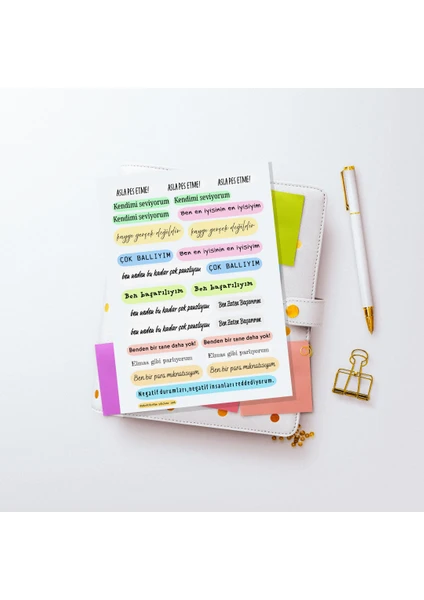 ASLA PES ETME! ASLA PES ETME! ASLA PES ETME!
Kendimi seviyorum Kendimi seviyorum
Kendimi seviyorum Ben en iyisinin en iyisiyim
kaygı gerçek değildir kaygı gerçek değildir
ÇOK BALLIYIM Ben en iyisinin en iyisiyim
ben neden bu kadar çok şanslıyım ÇOK BALLIYIM
Ben başarılıyım Ben başarılıyım
ben neden bu kadar çok şanslıyım Ben Zaten Başarırım
ben neden bu kadar çok şanslıyım Ben Zaten Başarırım
Benden bir tane daha yok! Benden bir tane daha yok!
Elmas gibi parlıyorum Elmas gibi parlıyorum
Ben bir para mıknatısıyım Ben bir para mıknatısıyım
Negatif durumları,negatif insanları reddediyorum.